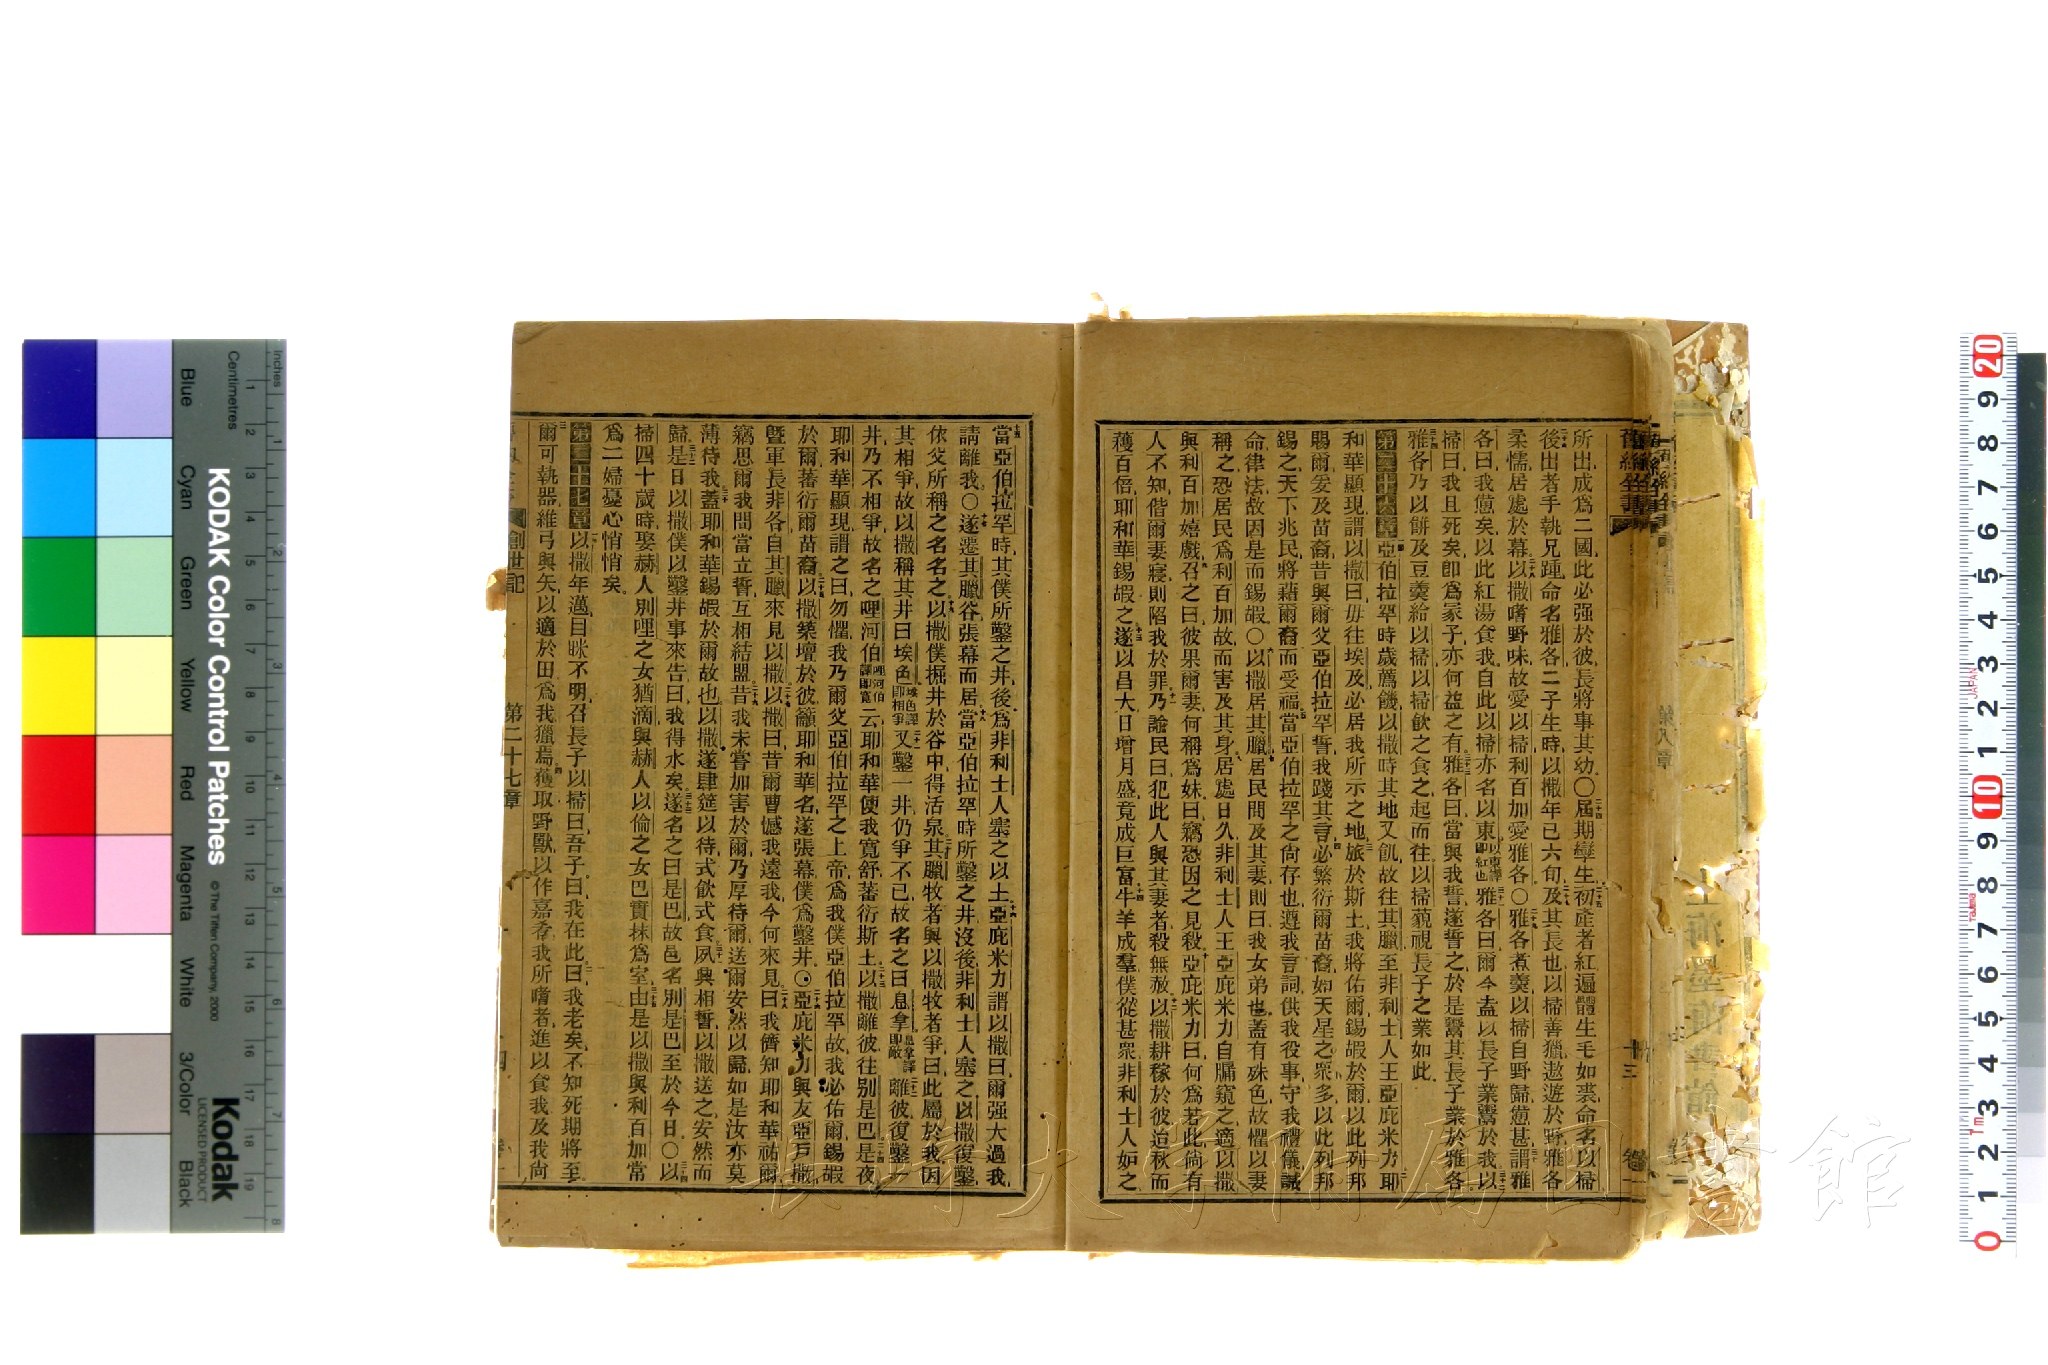 舊約全書
所出成爲二國此必强於彼長將事其幼○屆期孿生初產者紅遍體生毛如裘命名以掃
後出者手執兄踵命名雅各二子生時以撒年已六旬及其長也以掃善獵遨遊於野雅各
柔懦居處於幕以撒嗜野味故愛以掃利百加愛雅各○雅各煮羹以掃自野歸憊甚謂雅
各曰我憊矣以此紅湯食我自此以掃亦名以東以東譯即紅也雅各曰爾今盍以長子業鬻於我以
掃曰我且死矣卽爲冢子亦何益之有雅各曰當與我誓遂誓之於是鬻其長子業於雅各
雅各乃以餅及豆羹給以掃以掃飲之食之起而往以掃藐視長子之業如此
第二十六章亞伯拉罕時歲薦饑以撒時其地又飢故往其臘至非利士人王亞庇米力耶
和華顯現謂以撒曰毋往埃及必居我所示之地旅於斯土我將佑爾錫嘏於爾以此列邦
賜爾爰及苗裔昔與爾父亞伯拉罕誓我踐其言必繁衍爾苗裔如天星之衆多以此列邦
錫之天下兆民將藉爾裔而受福當亞伯拉罕之尙存也遵我言詞供我役事守我禮儀誡
命律法故因是而錫嘏○以撒居其臘居民間及其妻則曰我女弟也蓋有姝色故懼以妻
稱之恐居民爲利百加故而害及其身居處日久非利士人王亞庇米力自牖窺之適以撒
與利百加嬉戲召之曰彼果爾妻何稱爲妹曰竊恐因之見殺亞庇米力曰何爲若此倘有
人不知偕爾妻寢則陷我於罪乃諭民曰犯此人與其妻者殺無赦以撒耕稼於彼迨秋而
穫百倍耶和華錫嘏之遂以昌大日增月盛竟成巨富牛羊成羣僕從甚衆非利士人妒之
十三
當亞伯拉罕時其僕所鑿之井後爲非利士人塞之以土亞庇米力謂以撒曰爾强大過我
請離我○遂遷其臘谷張幕而居當亞伯拉罕時所鑿之井沒後非利士人塞之以撒復鑿
依父所稱之名名之以撒僕掘井於谷中得活泉其臘牧者與以撒牧者爭曰此屬於我因
其相爭故以撒稱其井曰埃色埃色譯即相爭又鑿一井仍爭不已故名之曰息拿息拿譯即敵離彼復鑿一
井乃不相爭故名之哩河伯哩河伯譯即寬云耶和華使我寬舒蕃衍斯土以撒離彼往別是巴是夜
耶和華顯現謂之曰勿懼我乃爾父亞伯拉罕之上帝爲我僕亞伯拉罕故我必佑爾錫嘏
於爾蕃衍爾苗裔以撒築壇於彼籲耶和華名遂張幕僕爲鑿井○亞庇米力與友亞戶撒
曁軍長非各自其臘來見以撒以撒曰昔爾曹憾我遠我今何來見曰我儕知耶和華祐爾
竊思爾我間當立誓互相結盟昔我未嘗加害於爾乃厚待爾送爾安然以歸如是汝亦莫
薄待我蓋耶和華錫嘏於爾故也以撒遂肆筵以待式飲式食夙興相誓以撒送之安然而
歸是日以撒僕以鑿井事來告曰我得水矣遂名之曰是巴故邑名別是巴至於今日○以
掃四十歲時娶赫人別哩之女猶滴與赫人以倫之女巴實抹爲室由是以撒與利百加常
爲二婦憂心悄悄矣
第二十七章以撒年邁目眯不明召長子以掃曰吾子曰我在此曰我老矣不知死期將至
爾可執器維弓與矢以適於田爲我獵焉獲取野獸以作嘉肴我所嗜者進以食我及我尙
創世記 第二十七章
KODAK Color Control Patches
© The Tiffen Company, 2000
Kodak
LICENSED PRODUCT
Inches
Centimetres
Blue Cyan Green Yellow Red Magenta White 3/Color Black
長崎大学附属図書館